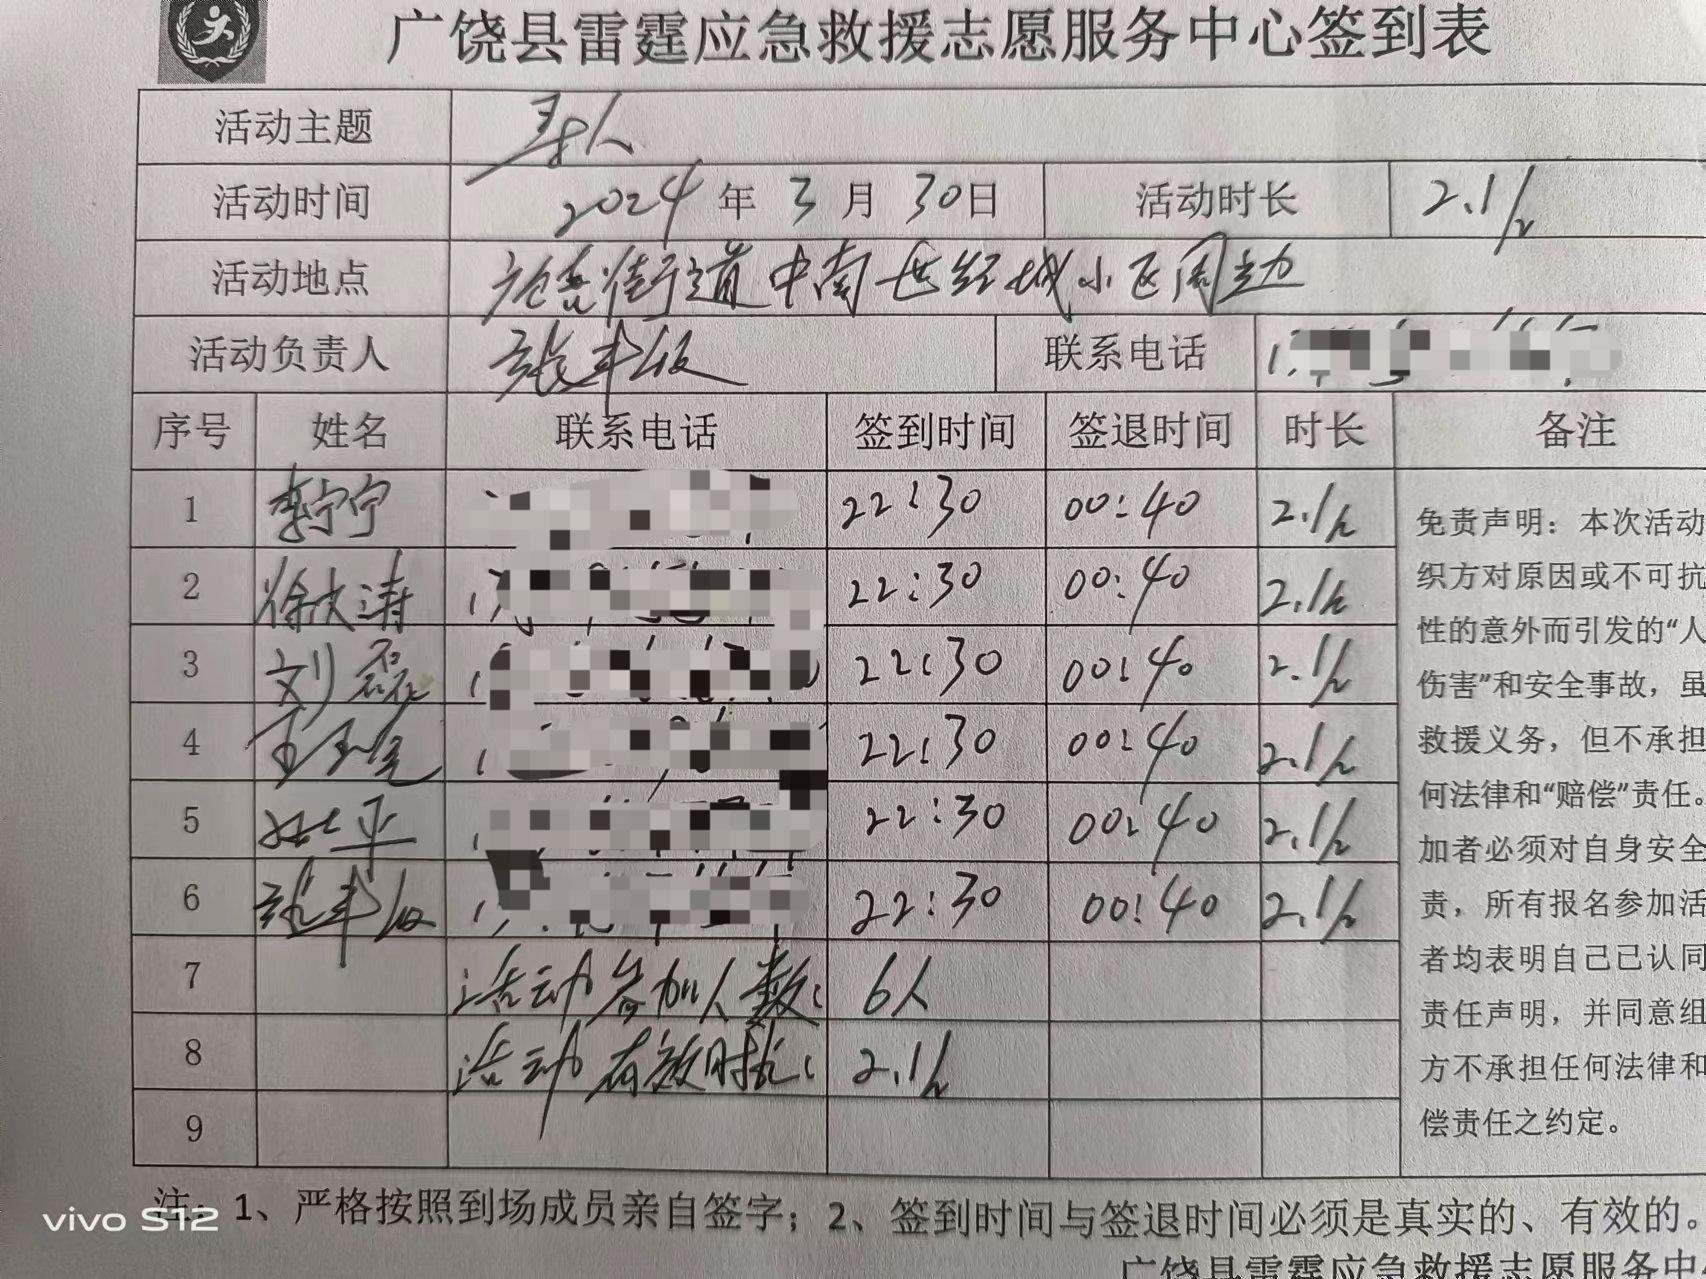 广饶县雷霆应急救援志愿服务中心签到表
活动主题 寻人
活动时间 2024年3月30日 活动时长 2.1h
活动地点 广饶街道中南世纪城小区周边
活动负责人 联系电话
序号 姓名 联系电话 签到时间 签退时间 时长 备注
1 李宁宁 22:30 00:40 2.1h
2 徐文涛 22:30 00:40 2.1h
3 刘磊 22:30 00:40 2.1h
4 22:30 00:40 2.1h
5 22:30 00:40 2.1h
6 22:30 00:40 2.1h
7 活动参加人数: 6人
8 活动有效时长: 2.1h
9
免责声明：本次活动
织方对原因或不可抗
性的意外而引发的“人
伤害”和安全事故，虽
救援义务，但不承担
何法律和“赔偿”责任。
加者必须对自身安全
责，所有报名参加活
者均表明自己已认同
责任声明，并同意组
方不承担任何法律和
偿责任之约定。
注：1、严格按照到场成员亲自签字；2、签到时间与签退时间必须是真实的、有效的。
广饶县雷霆应急救援志愿服务中
vivo S12